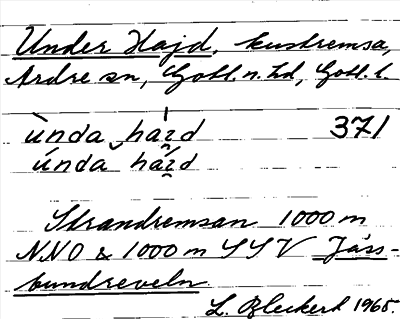 Under Hajd, kustremsa,
Ardre sn, Gotl. n. hd, Gotl. l.
ùnda ̮ házd 371
únda házd
Strandremsan 1000 m
NNO & 1000 m SSV Jäss-
bundreveln
L. Bleckert 1965.